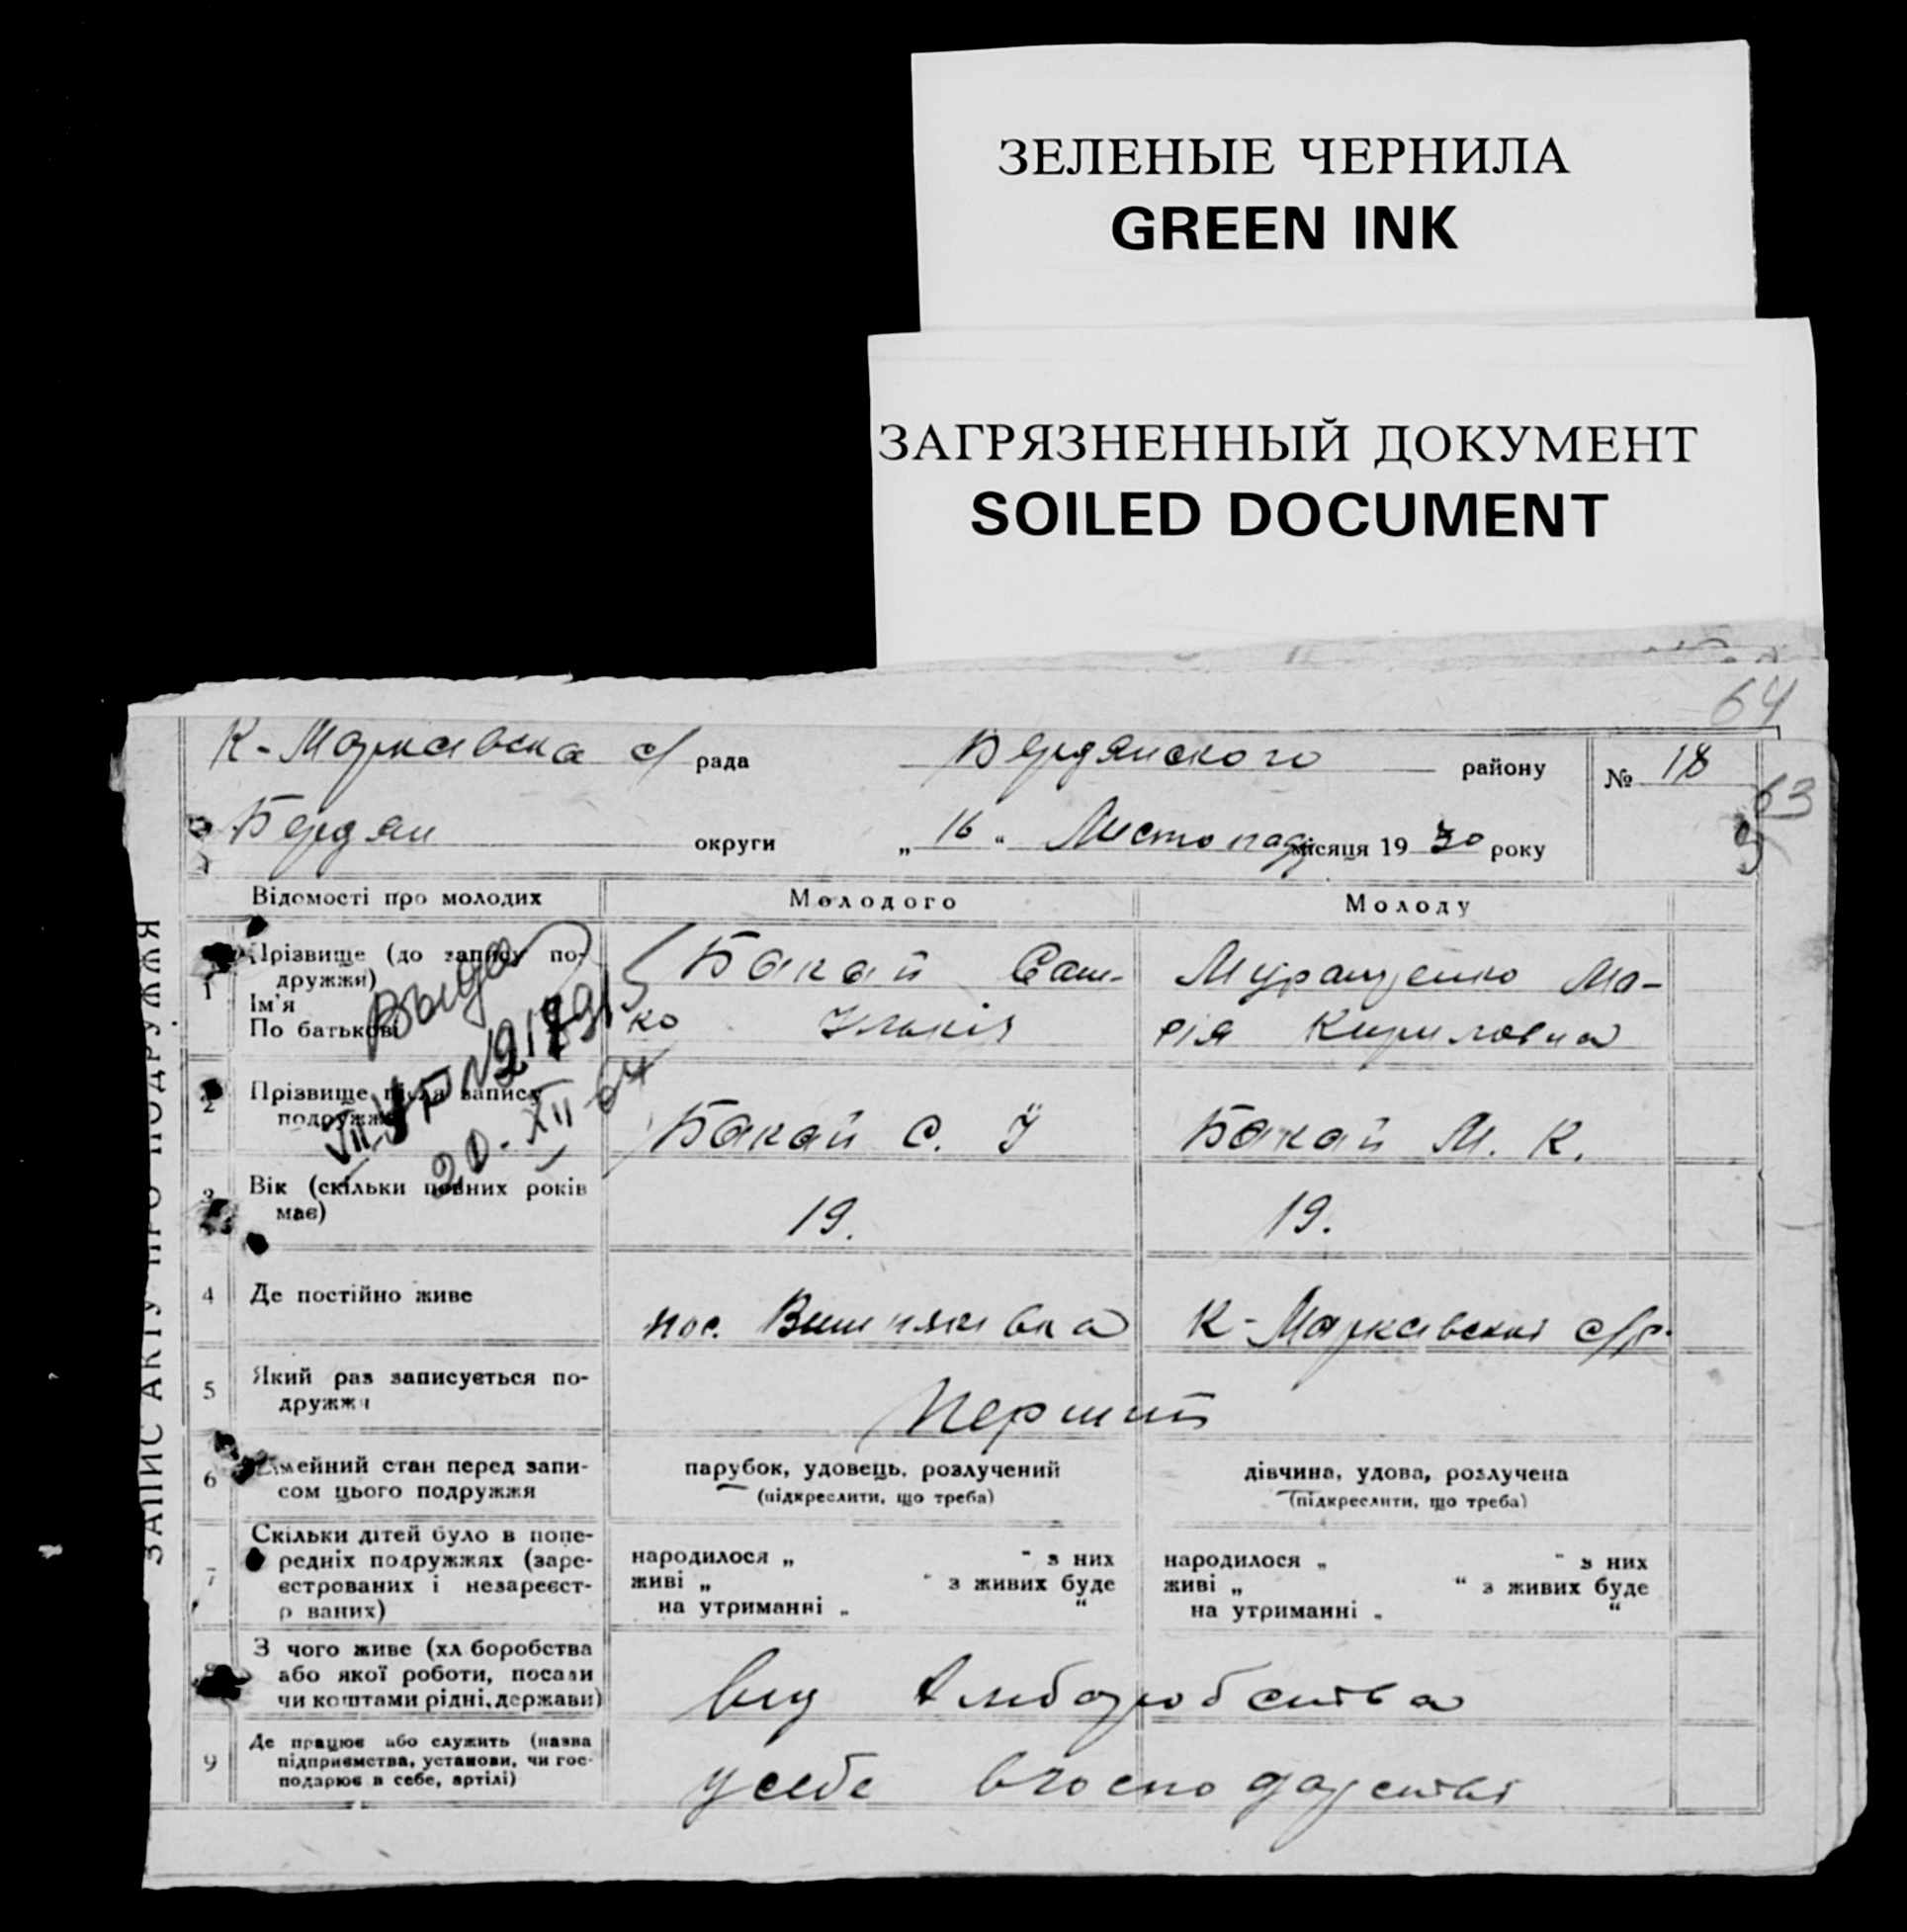 ЗЕЛЕНЫЕ ЧЕРНИЛА
GREEN INK
ЗАГРЯЗНЕННЫЙ ДОКУМЕНТ
SOILED DOCUMENT
64
К-Маркавска с/ рада Бердянского району № 18
63
Бердян округи „ 16 “ Листопад місяця 19 30 року
ЗАПИС АКТУ ПРО ПОДРУЖЖЯ
Відомості про молодих Молодого Молоду
1 Прізвище (до запису подружжи) Бакай Саш-
Ім'я
По батькові
ко Муращенко Ма-
рія Кириловна
2 Прізвище після запису
подружжя Бакай С. І Бакай М. К.
VII УР №
20. XII 64
3 Вік (скільки повних років
має) 19. 19.
4 Де постійно живе пос. К-Маркавскиі с/р.
5 Який раз записується по-
дружжя Перший
6 Сімейний стан перед запи- парубок, удовець, розлучений дівчина, удова, розлучена
сом цього подружжя (підкреслити, що треба) (підкреслити, що треба)
7 Скільки дітей було в попе-
редніх подружжях (заре-
єстрованих і незареєст-
р ваних)
народилося „ “ з них
живі „ “ з живих буде
на утриманні „ “
народилося „ “ з них
живі „ “ з живих буде
на утриманні „ “
8 З чого живе (хл боробства
або якої роботи, посади
чи коштами рідні, держави)
від хлиборобства
9 Де працює або служить (назва
підприємства, установи, чи гос-
подарює в себе, артілі)
у себе в господарстві